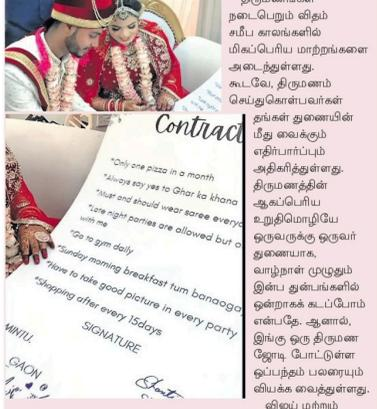 நடைபெறும் விதம்
சமீப காலங்களில்
மிகப்பெரிய மாற்றங்களை
அடைந்துள்ளது.
கூடவே, திருமணம்
செய்துகொள்பவர்கள்
தங்கள் துணையின்
மீது வைக்கும்
எதிர்பார்ப்பும்
அதிகரித்துள்ளது.
திருமணத்தின்
ஆகப்பெரிய
உறுதிமொழியே
ஒருவருக்கு ஒருவர்
துணையாக,
வாழ்நாள் முழுதும்
இன்ப துன்பங்களில்
ஒன்றாகக் கடப்போம்
என்பதே. ஆனால்,
இங்கு ஒரு திருமண
ஜோடி போட்டுள்ள
ஒப்பந்தம் பலரையும்
வியக்க வைத்துள்ளது.
விஜய் மற்றும்
Contract
*Only one pizza in a month
*Always say yes to Ghar ka khana
*Must and should wear saree everyd
*Late night parties are allowed but o
with me
*Go to gym daily
*Sunday morning breakfast tum banaoga
*Have to take good picture in every party
*Shopping after every 15days
SIGNATURE
MINTU.
GAON